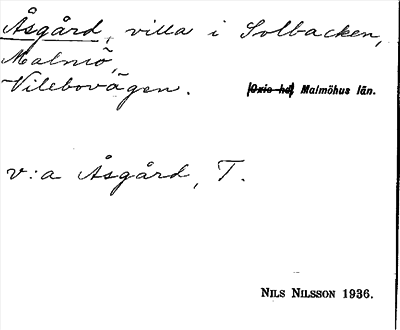 Åsgård, villa i Solbacken,
Malmö,
Vilebovägen. [Oxie hd] Malmöhus län.
v:a Åsgård, T.
NILS NILSSON 1936.